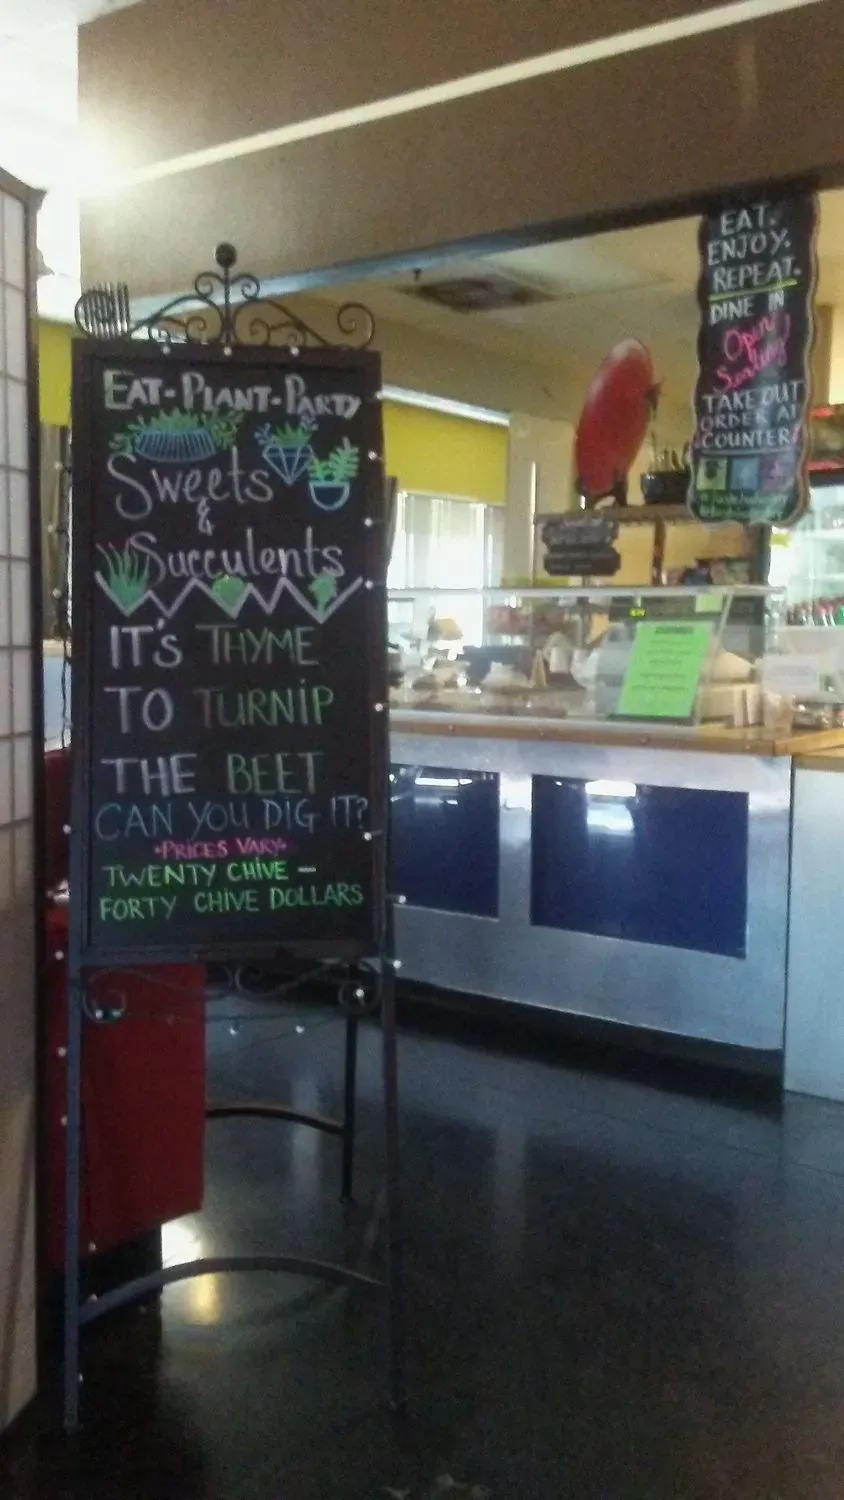 EAT-PLANT-PARTY
Sweets
&
Succulents
IT'S THYME
TO TURNIP
THE BEET
CAN YOU DIG IT?
•PRICES VARY•
TWENTY CHIVE —
FORTY CHIVE DOLLARS
EAT.
ENJOY.
REPEAT.
DINE IN
Open
Seating!
TAKE OUT
ORDER AT
COUNTER!